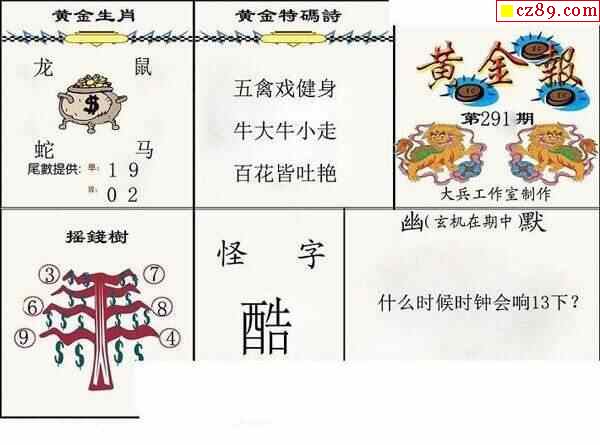 cz89.com
黄金生肖
龙 鼠
$
蛇 马
尾數提供：單：1 9
0 2
黄金特碼詩
五禽戏健身
牛大牛小走
百花皆吐艳
黄金報
第291期
大兵工作室制作
摇錢樹
③ ⑦
⑥ ⑧
⑨ ④
$ $ $ $ $ $ $ $
怪 字
酷
幽(玄机在期中)默
什么时候时钟会响13下?